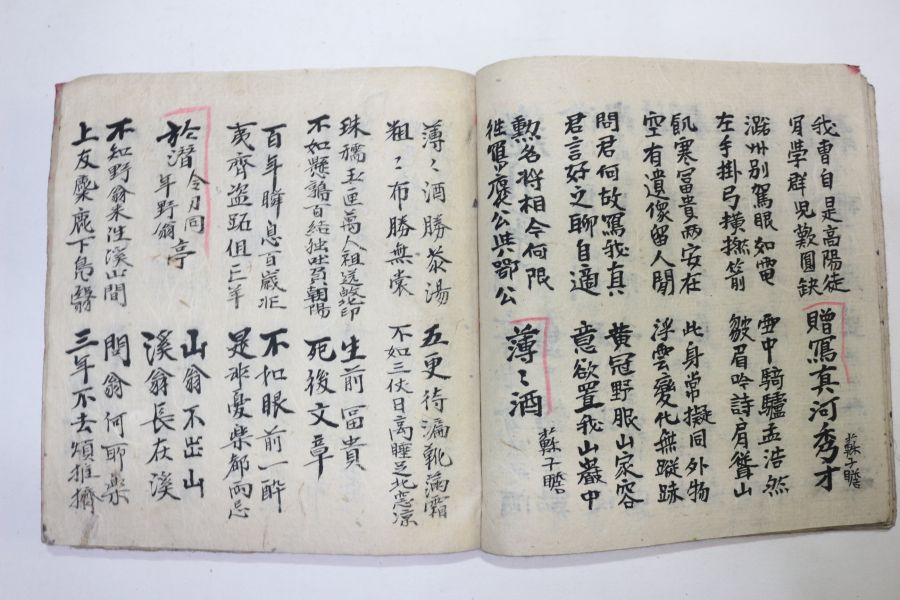 我曹自是高陽徒
肯學群兒歎圓缺
贈寫真河秀才
蘇子瞻
潞州別駕眼如電
左手掛弓橫撚箭
雪中騎驢孟浩然
皺眉吟詩肩聳山
飢寒富貴兩安在
空有遺像留人間
此身常擬同外物
浮雲變化無蹤跡
問君何故寫我真
君言好之聊自適
黃冠野服山家容
意欲置我山巖中
勳名將相今何限
往寫褒公與鄂公
薄〻酒
薄〻酒勝茶湯
粗〻布勝無裳
五更待漏靴滿霜
不如三伏日高睡足北窓涼
珠襦玉匣萬人祖送歸北邙
不如懸鶉百結獨坐負朝陽
生前富貴
死後文章
百年瞬息百歲忙
夷齊盜跖俱亡羊
不如眼前一醉
是非憂樂都兩忘
於潛令刁同年野翁亭
山翁不出山
溪翁長在溪
不如野翁來往溪山間
上友麋鹿下鳧鷖
問翁何所樂
三年不去煩推擠